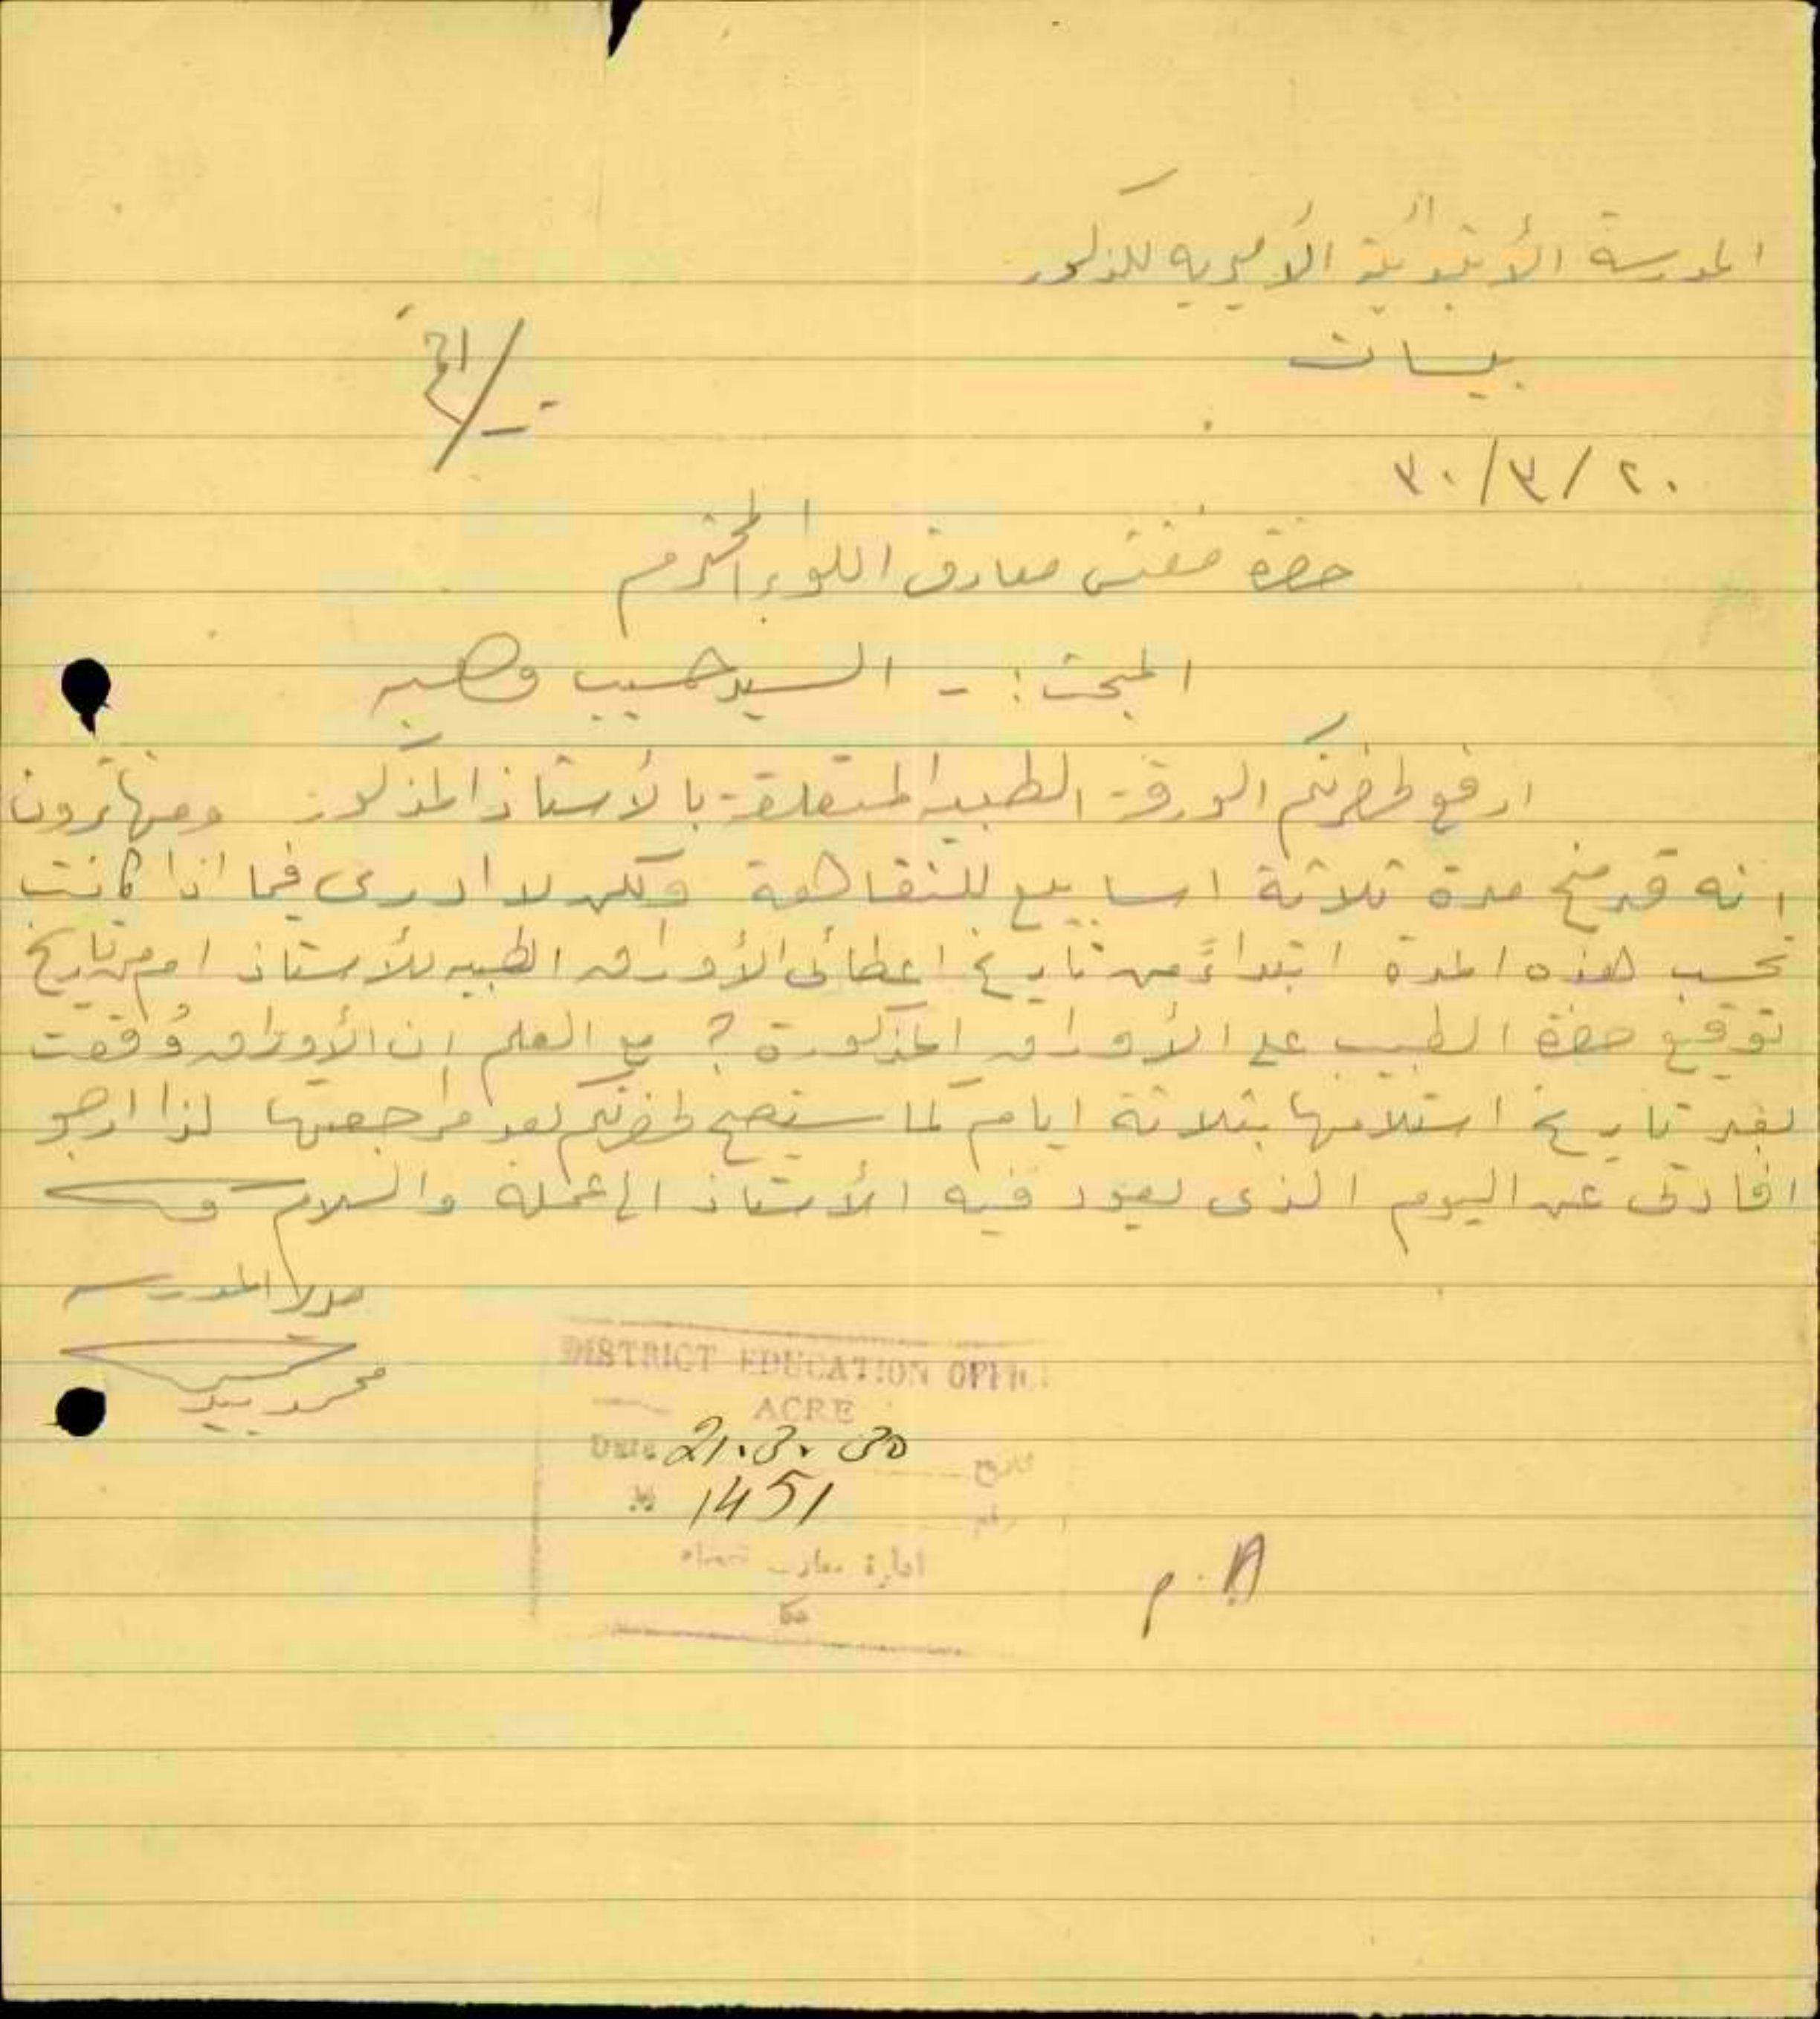 المدرسة الأبتدائية الأميريه للذكور
بيسان
٢٠/٣/٣٠
حضرة مفتش معارف اللواء المحترم
المبحث :- السيد حسيب وهبه
ارفع لحضرتكم الورقة الطبيه المتعلقة بالأستاذ المذكور ومنها ترون
انه قد منح مدة ثلاثة اسابيع للنقاهة ولكن لا ادرى فيما اذا كانت
تحسب هذه المدة ابتداءً من تاريخ اعطائى الأوراق الطبيه للأستاذ ام من تاريخ
توقيع حضرة الطبيب على الأوراق المذكورة ? مع العلم ان الأوراق وُقعت
بغير تاريخ استلامها بثلاثة ايام كما سيتضح لحضرتكم بعد مراجعتها لذا ارجو
افادتى عن اليوم الذى يعود فيه الأستاذ الى عمله والسلام
مدير المدرسه
محمد
DISTRICT EDUCATION OFFICE
ACRE
Date 21.3.30 تاريخ
№ 1451 رقم
ادارة معارف
عكا